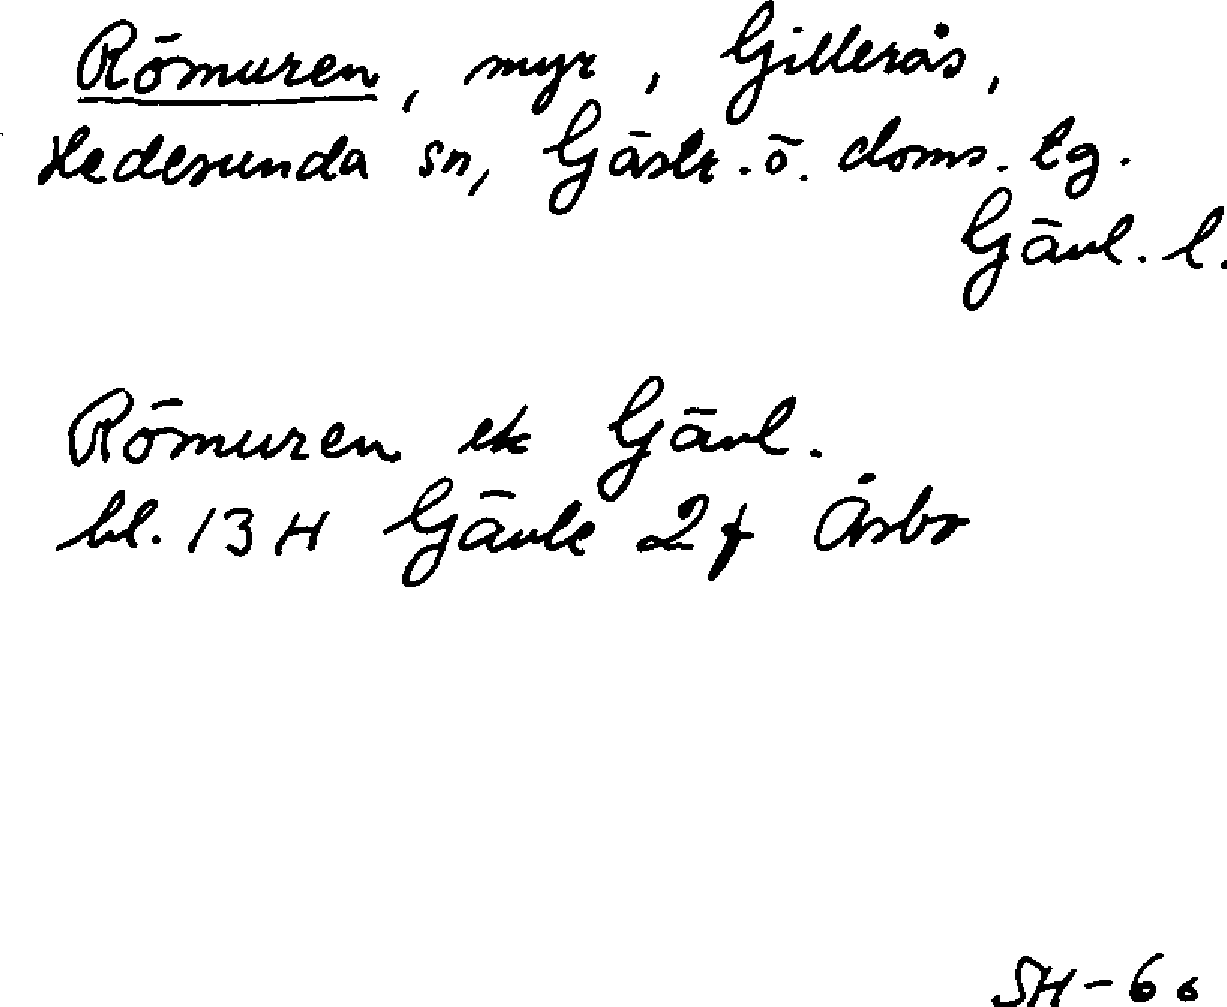 Römuren, myr, Gillerås,
Hedesunda sn, Gästr. ö. doms. tg.
Gävl. l.
Römuren ek Gävl.
bl. 13 H Gävle 2 f Åsbo
SH-66